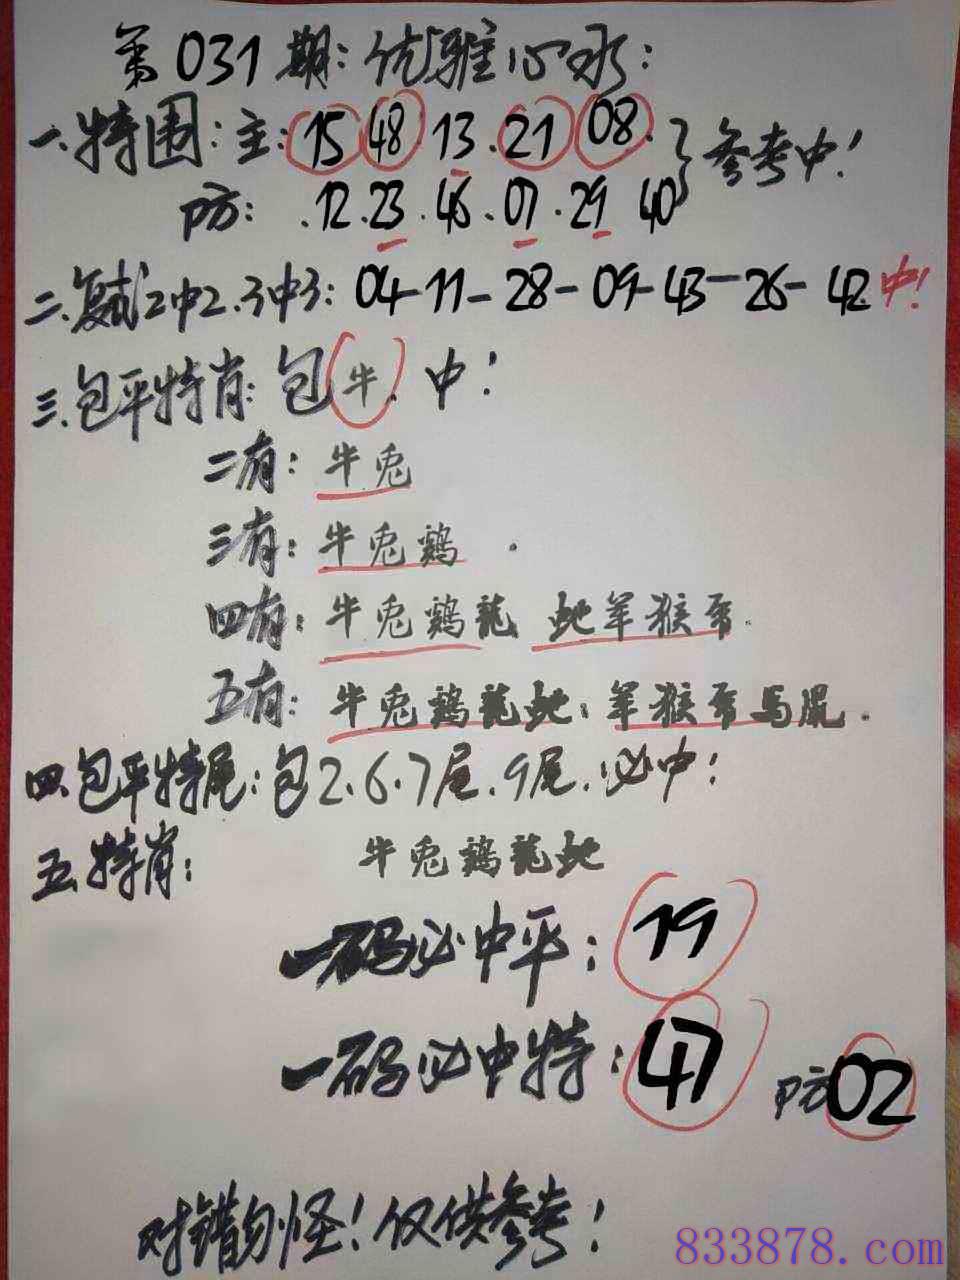 第031期:优雅心水:
一.特围:主:15 48·13·21 08·
防:·12·23·46·07·29 40
参考中!
二.复试2中2.3中3:04-11-28-09-43-26-42中!
三.包平特肖:包牛.中!
二有:牛兎
三有:牛兎鷄.
四有:牛兎鷄龍 蛇羊猴
五有:牛兎鷄龍蛇:羊猴 馬鼠.
四.包平特尾:包2.6.7尾.9尾.必中!
五.特肖:牛兎鷄龍蛇
一码必中平:19
一码必中特:47 防02
对错勿怪!仅供参考!
833878.com